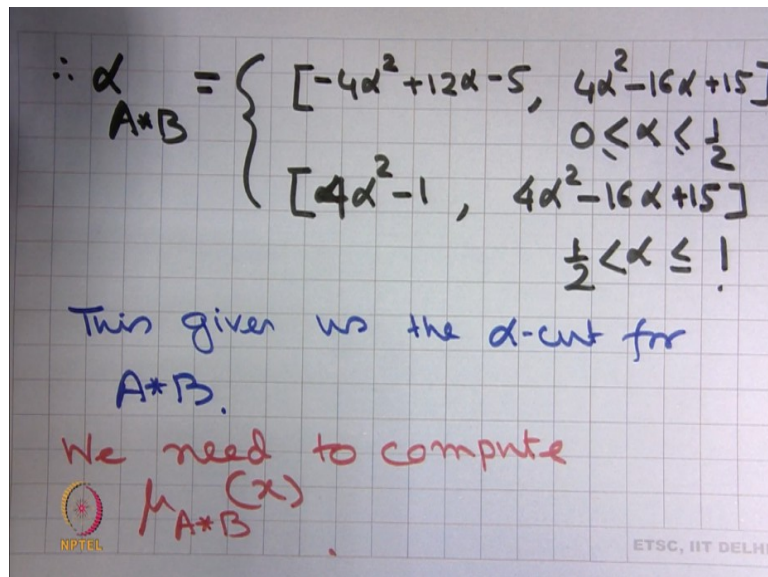 ∴ α = { [-4α²+12α-5, 4α²-16α+15]
A*B
0 ≤ α ≤ 1/2
[4α²-1, 4α²-16α+15]
1/2 < α ≤ 1
This gives us the α-cut for
A*B.
We need to compute
μ_{A*B}(x).
NPTEL
ETSC, IIT DELH